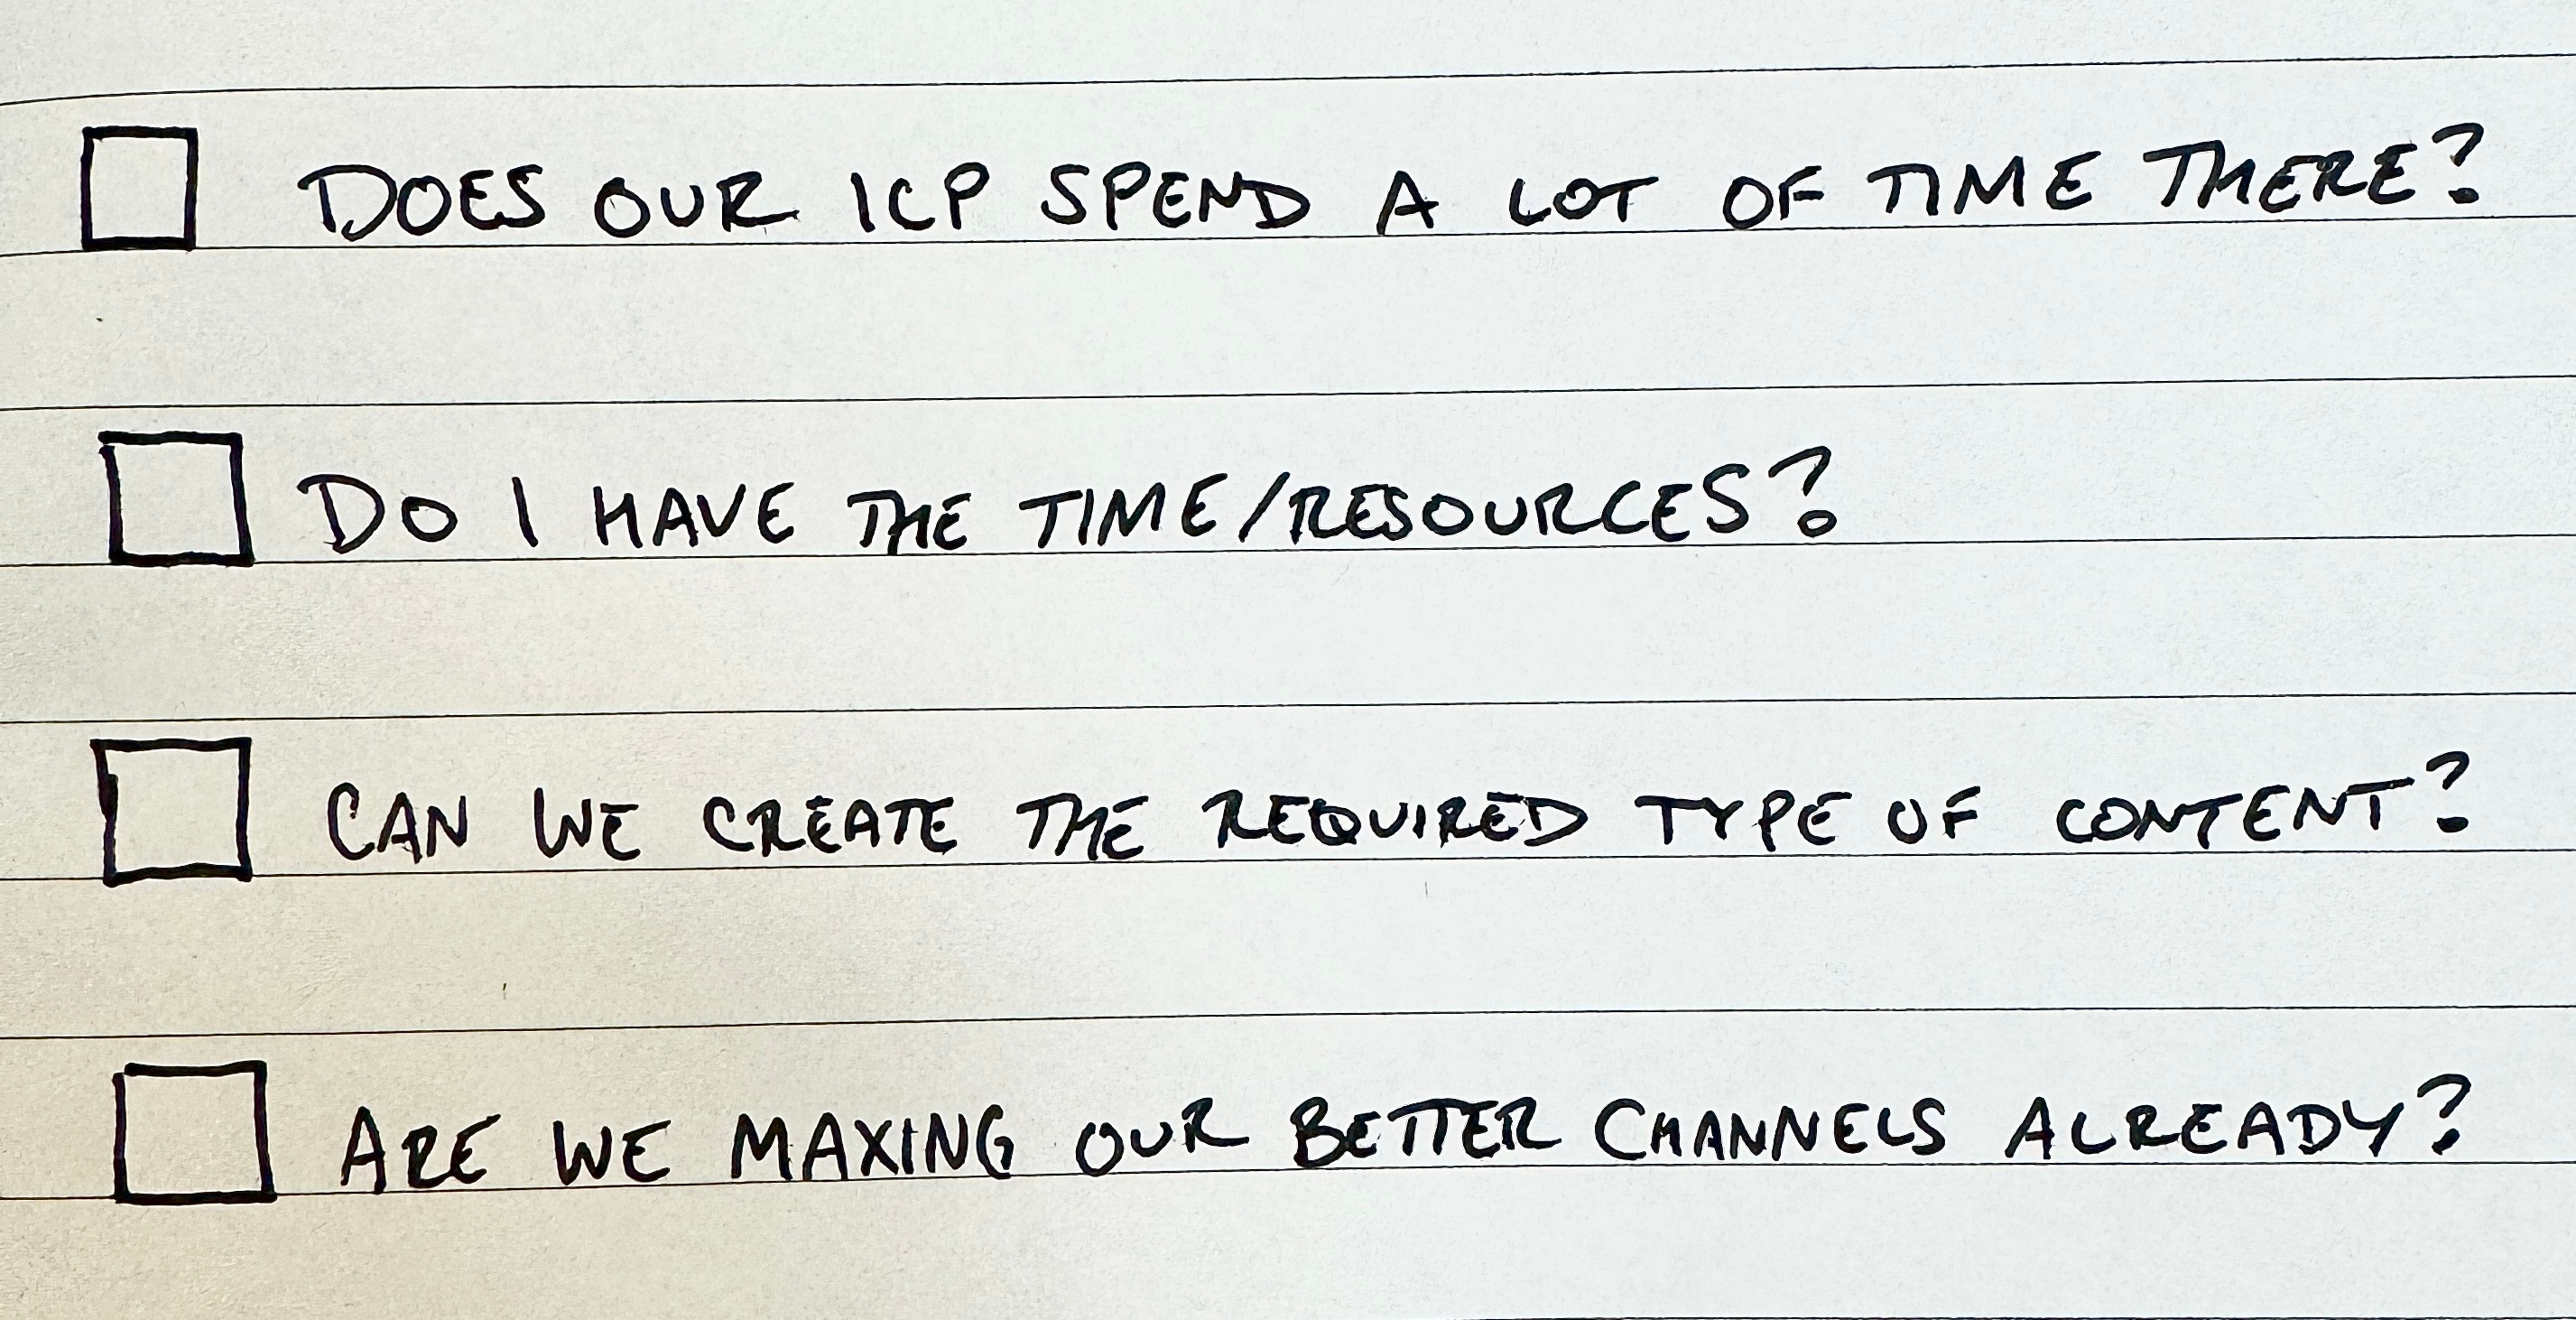 DOES OUR ICP SPEND A LOT OF TIME THERE?
DO I HAVE THE TIME/RESOURCES?
CAN WE CREATE THE REQUIRED TYPE OF CONTENT?
ARE WE MAXING OUR BETTER CHANNELS ALREADY?